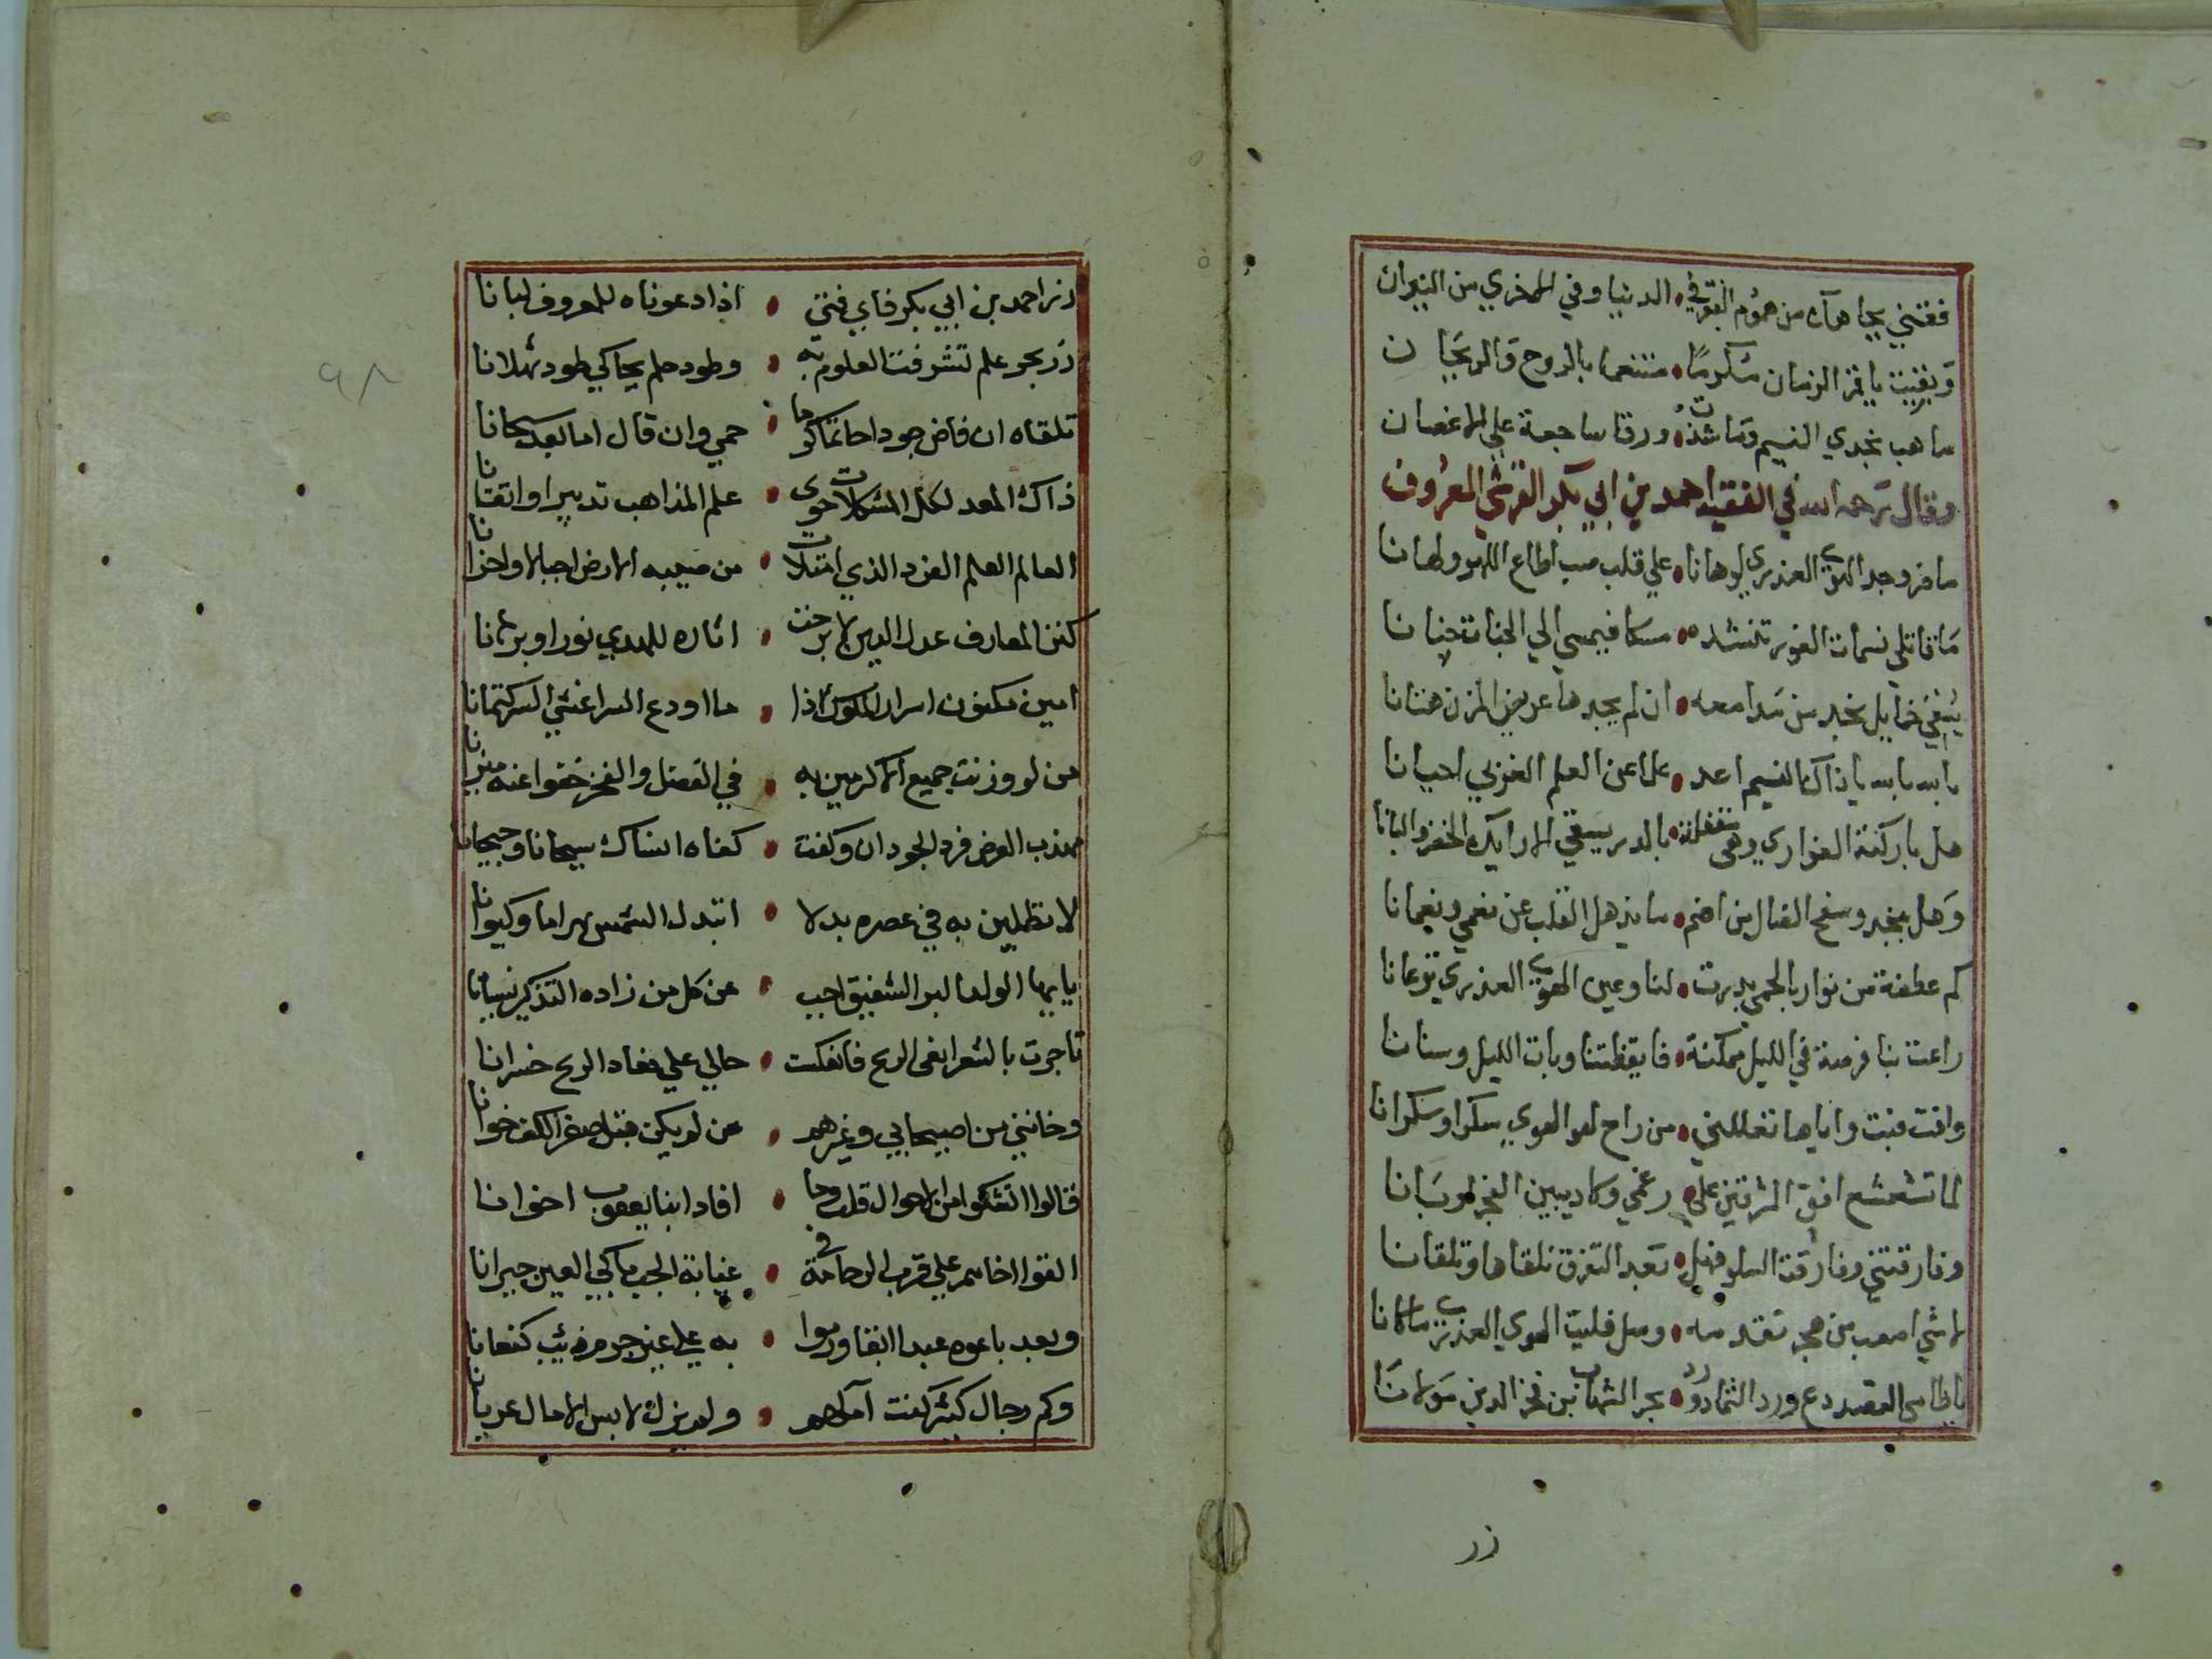 فقني بجاهك من هموم القوم في الدنيا وفي الاخرى من النيران
وبقيت يا فخر الزمان مكرما • متنعما بالروح والريحان
ما هب نجدي النسيم وما شدت • ورقا ساجعة علي الاغصان
وقال رحمه الله في الفقيه احمد بن ابي بكر القرشي المعروف
علي قلب صب اطاع اللهو ولهانا
مسكا فيمسي الي الجنات جنانا
يسقي خمايل نجد من مدامعه • ان لم يجدها عريض المزن هتانا
بالله بالله ياذاك النسيم اعد • علما عن العلم الغربي احيانا
وهل بنجد وسفح الضال من اضم • ما يذهل القلب عن نعمي ونعمانا
لنا وعين الهوي العذري ترعانا
راعت بنا فرصة في الليل ممكنة • فايقظتنا وبات الليل وسنانا
وافت فبت واياها تعللني • من راح لهو الهوي سكرا وسكرانا
لما تشعشع افق المشرقين علي • رغمي وكاد يبين الفجر لو بانا
وفارقتني وفارقت السلو فهل • بعد التفرق نلقاها وتلقانا
لا شي اصعب من هجر تقدمه • وصل فليت الهوي العذري ما كانا
يا طامي القصد دع ورد الثماد ورد • بحر الشهاب بن فخر الدين مولانا
زر
زر احمد بن ابي بكر فاي فتي • اذا دعوناه للمعروف لبانا
زر بحر علم تشرفت العلوم به • وطود حلم يحاكي طود ثهلانا
تلقاه ان فاض جودا حاتما كرما • حمي وان قال اما بعد سحبانا
ذاك المعد لكل المشكلات حوى • علم المذاهب تدبيرا واتقانا
العالم العلم الفرد الذي امتلات • من صيبه الارض اجبالا واحزانا
كنز المعارف عدل الدين لا برحت • اثاره للهدي نورا وبرهانا
امين مكنون اسرار الملوك اذا • ما اودع السر اغشي السر كتمانا
من لو وزنت جميع الاكرمين به • في الفضل والفخر خفوا عنه ميزانا
مهذب العرض فرد الجود ان وكفت • كفاه انساك سيحانا وجيحانا
لا تطلبين به في عصره بدلا • اتبدل الشمس بهراما وكيوانا
يا ايها الولد البر الشفيق اجب • عن كل من زاده التذكير نسيانا
تاجرت بالشعر ابغي الربح فانعكست • حالي علي فعاد الربح خسرانا
وخانني من اصيحابي وغيرهم • من لم يكن قبل صفر الكف خوانا
افاد ابنا يعقوب اخوانا
القوا اخاهم علي قرب الرحامة في • غيابة الجب باكي العين حيرانا
وبعد باعوه عبدا ابقا ورموا • به علي غير جرم ذئب كنعانا
وكم رجال كثير كفت آمالهم • ولم يزل لابس الامال عريانا
٩٨